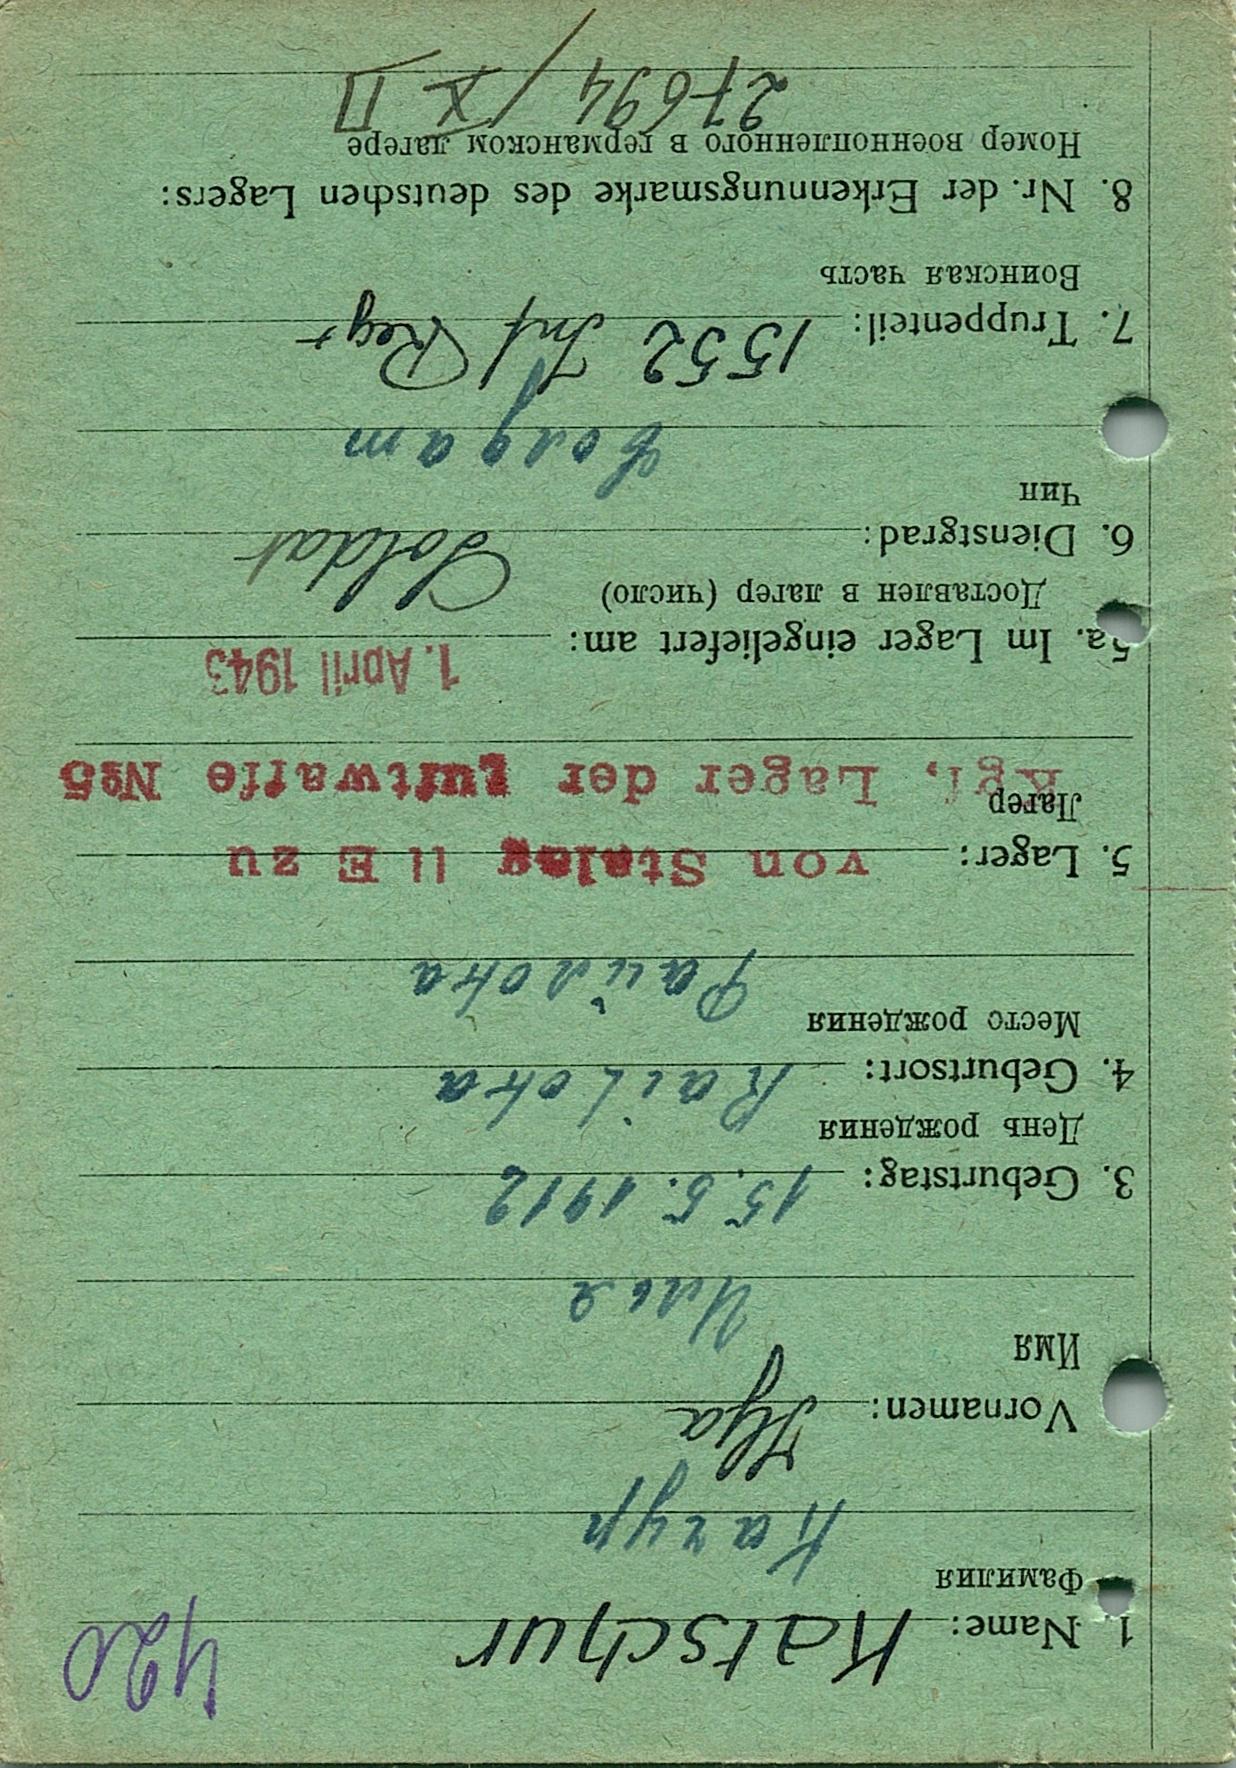 420
1. Name: Katschur
Фамилия
Качур
Vornamen: Ilya
Имя
Илья
3. Geburtstag: 15.5.1912
День рождения
4. Geburtsort: Railoka
Место рождения
Райлока
5. Lager: von Stalag II E zu
Лагер
Kgf. Lager der Luftwaffe №5
5a. Im Lager eingeliefert am: 1. April 1943
Доставлен в лагер (число)
6. Dienstgrad: Soldat
Чин
Солдат
7. Truppenteil: 1552 Inf Regt
Воинская часть
8. Nr. der Erkennungsmarke des deutschen Lagers:
Номер военнопленного в германском лагере
27694/X D